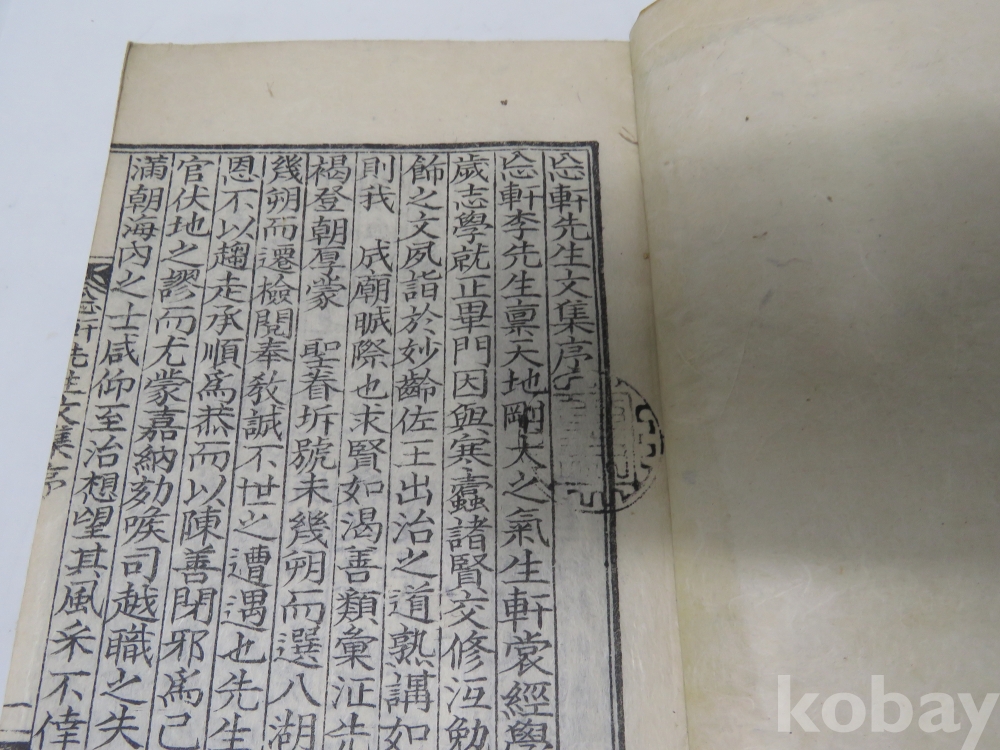 忩軒先生文集序
忩軒李先生禀天地剛大之氣生軒裳經學
歲志學就正畢門因與寒蠧諸賢交修冱勉
飾之文夙詣於妙齡佐王出治之道熟講如
則我 成廟睗際也求賢如渴善類彙征先
褐登朝厚蒙 聖眷圻號未幾朔而選八湖
幾朔而遷檢閱奉教誠不世之遭遇也先生
恩不以趨走承順為恭而以陳善閉邪為己
官伏地之謬而尤蒙嘉納劾喉司越職之失
滿朝海內之士咸仰至治想望其風采不倖
軒先生文集序
一
kobay